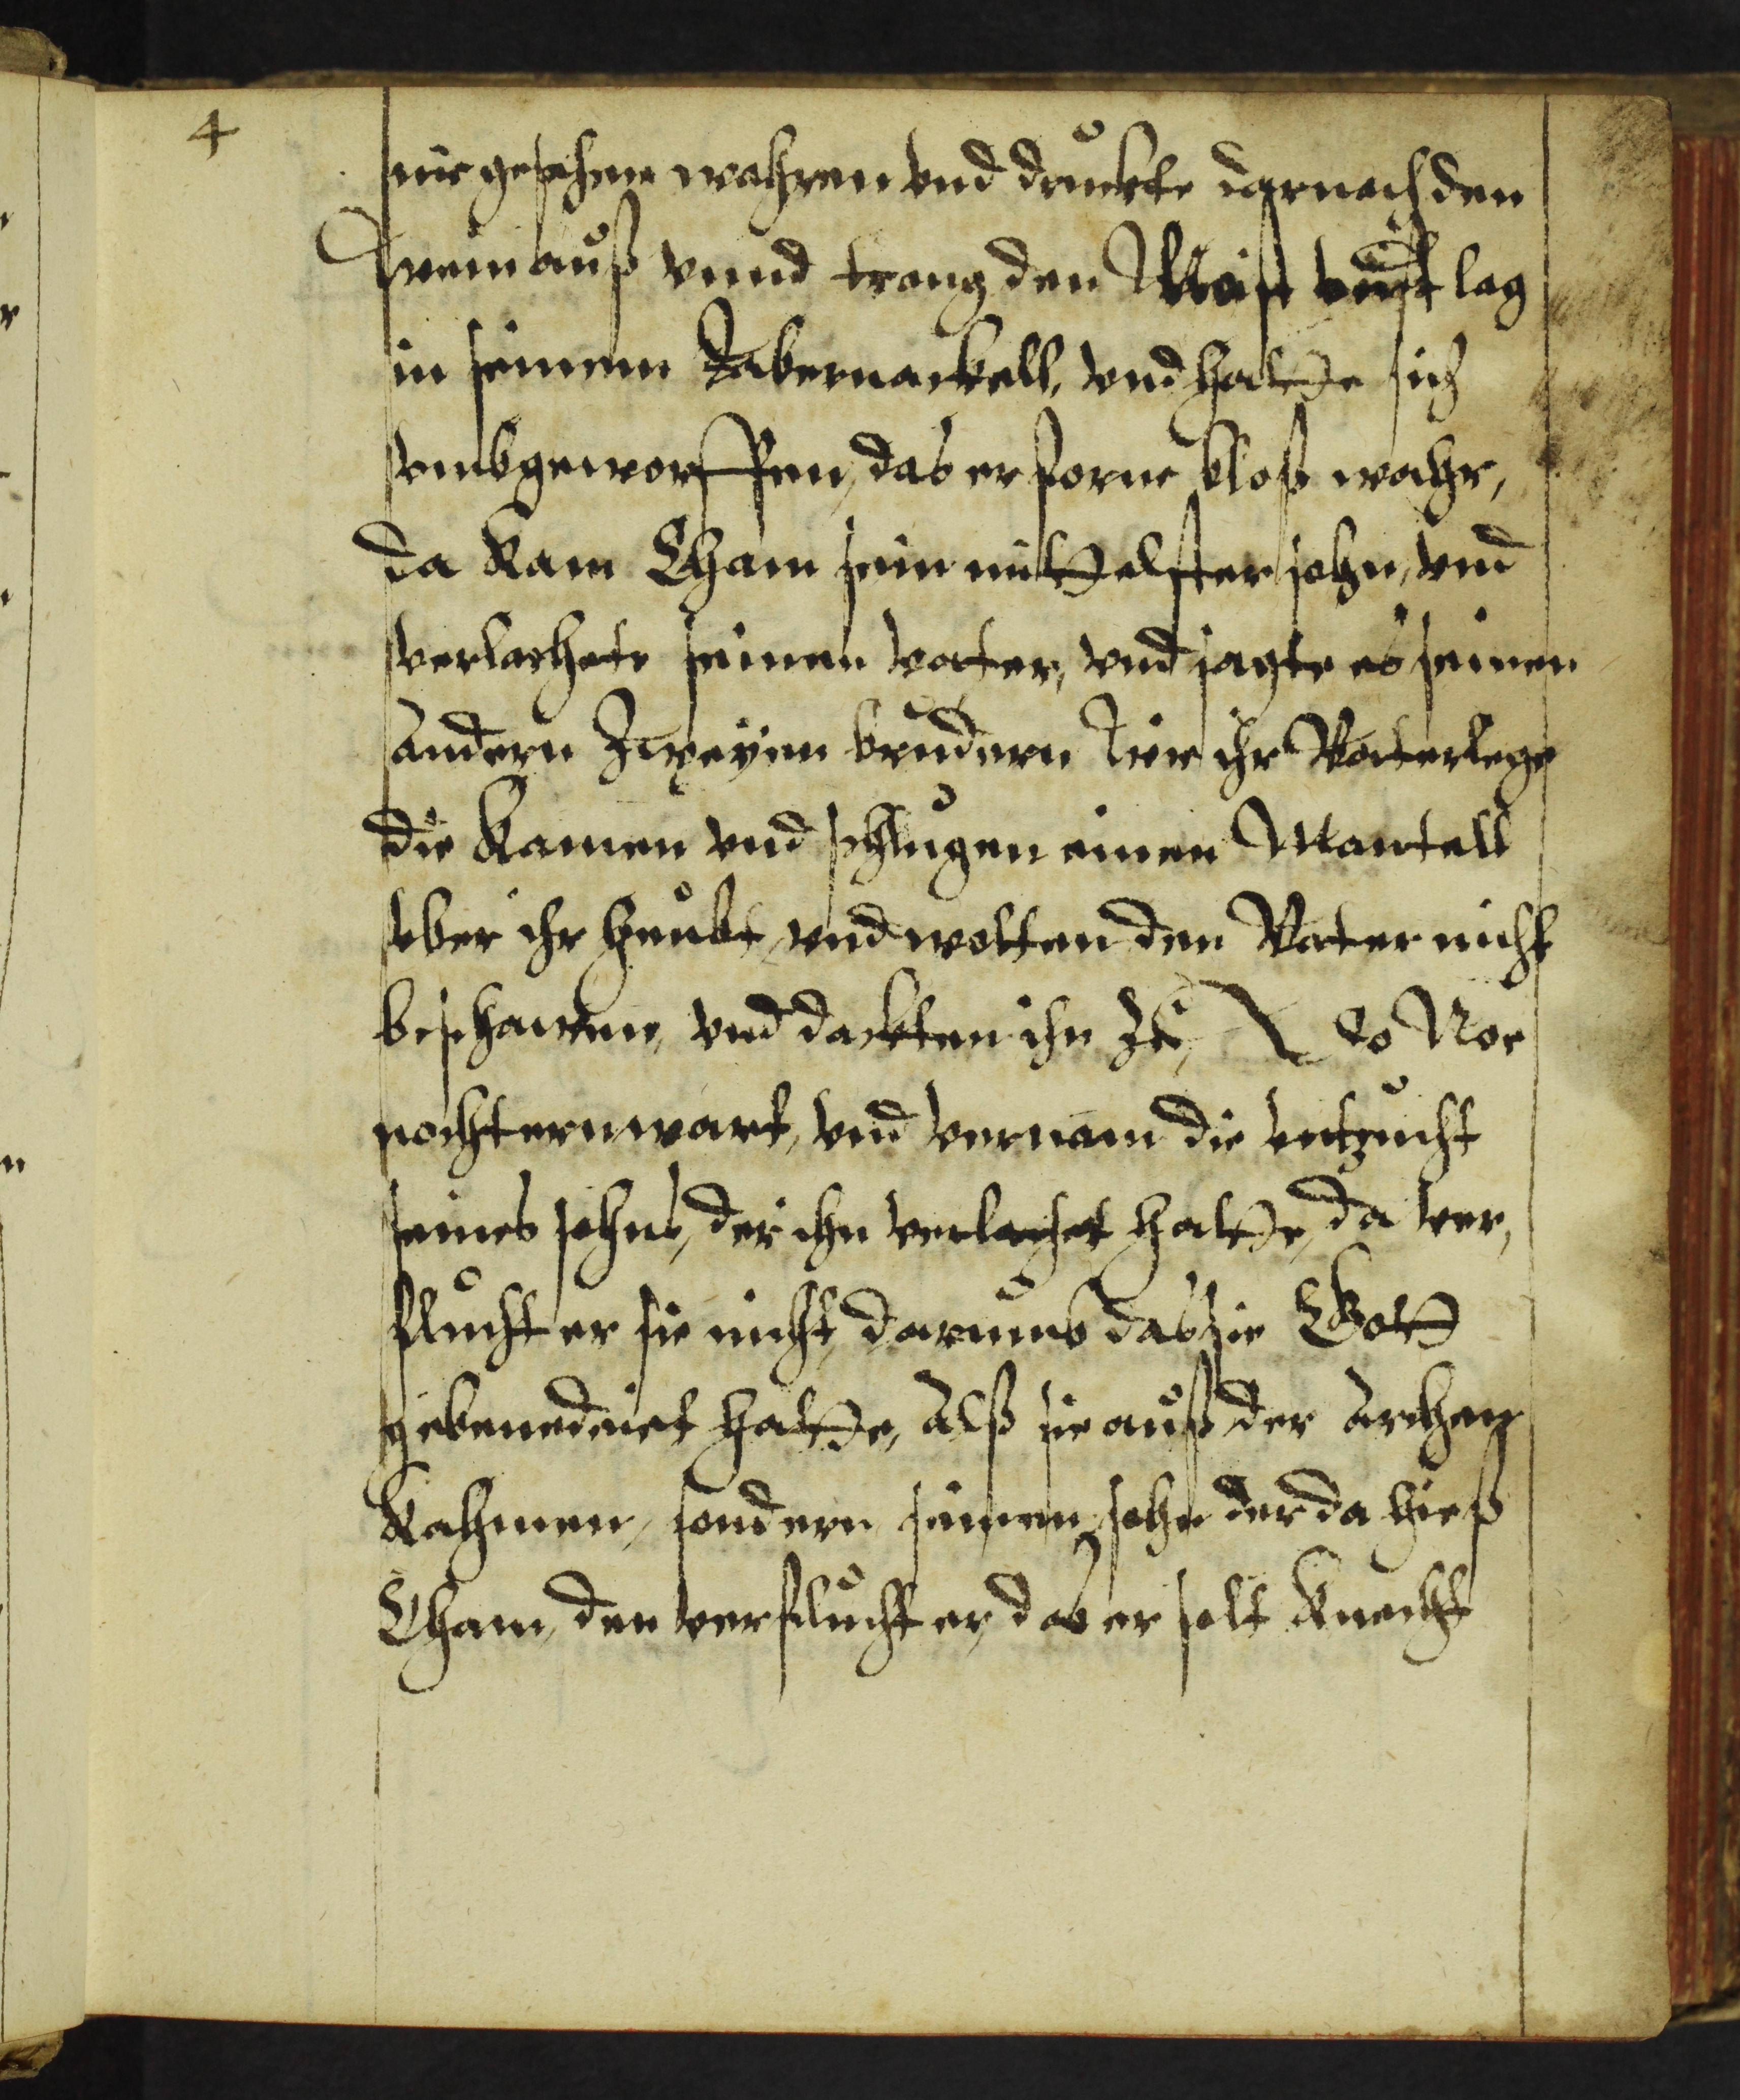 4
nie gesehenn wahren vnd druckte darnach den
Wein auß vnnd trang den Most vnd lag
in seinem Tabernackell, vnd hatte sich
vmbgeworffen, das er forne bloß wahr,
da kam Cham sein mittelster sohn, vnd
verlachete seinen vater, vnd sagte es seinen
andern zweyen brudern wie ihr Vater lege
die kamen vnd schlugen einen Mantell
vber ihr heubt, vnd wolten den Vater nicht
beschawen, vnd dackten ihn zu, Do Noe
nochtern wart, vnd vernam die vntzucht
seines sohns, der ihn verlachet hatte, da ver,
flucht er sie nicht, darumb das sie Gott
gebenedeiet hatte, alß sie auß der Archen
kahmen, sondern seinen sohn der da hieß
Cham, den verflucht er, das er solt knecht